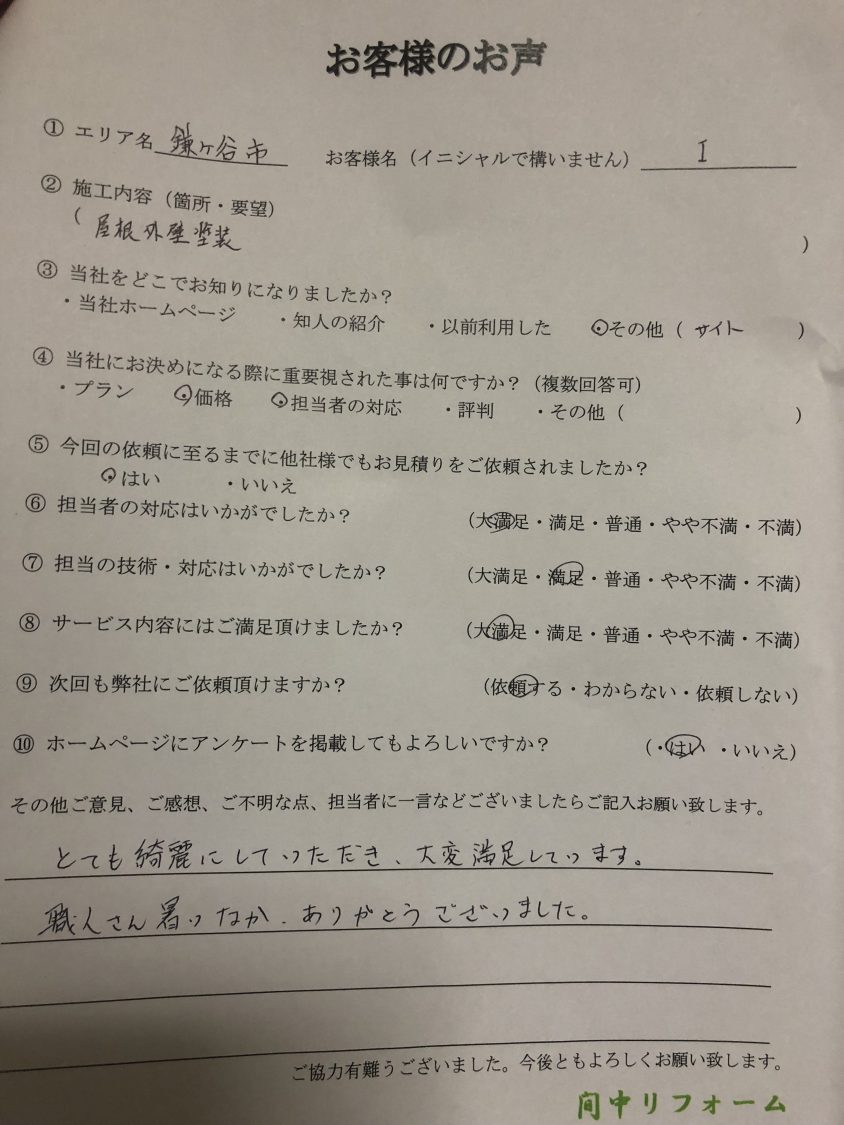 お客様のお声
① エリア名 鎌ヶ谷市 お客様名（イニシャルで構いません） I
② 施工内容（箇所・要望）
（ 屋根外壁塗装 ）
③ 当社をどこでお知りになりましたか？
・当社ホームページ ・知人の紹介 ・以前利用した ・その他（ サイト ）
④ 当社にお決めになる際に重要視された事は何ですか？（複数回答可）
・プラン ・価格 ・担当者の対応 ・評判 ・その他（ ）
⑤ 今回の依頼に至るまでに他社様でもお見積りをご依頼されましたか？
・はい ・いいえ
⑥ 担当者の対応はいかがでしたか？ （大満足・満足・普通・やや不満・不満）
⑦ 担当の技術・対応はいかがでしたか？ （大満足・満足・普通・やや不満・不満）
⑧ サービス内容にはご満足頂けましたか？ （大満足・満足・普通・やや不満・不満）
⑨ 次回も弊社にご依頼頂けますか？ （依頼する・わからない・依頼しない）
⑩ ホームページにアンケートを掲載してもよろしいですか？ （・はい ・いいえ）
その他ご意見、ご感想、ご不明な点、担当者に一言などございましたらご記入お願い致します。
とても綺麗にしていただき、大変満足しています。
職人さん暑いなか、ありがとうございました。
ご協力有難うございました。今後ともよろしくお願い致します。
間中リフォーム